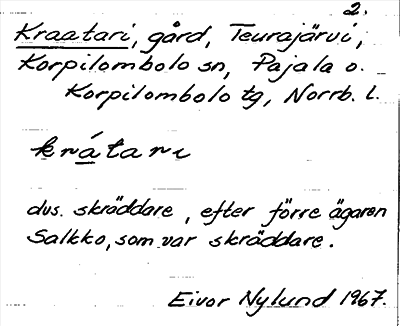 2.
Kraatari, gård, Teurajärvi,
Korpilombolo sn, Pajala o.
Korpilombolo tg, Norrb. l.
krátari
dvs. skräddare, efter förre ägaren
Salkko, som var skräddare.
Eivor Nylund 1967.